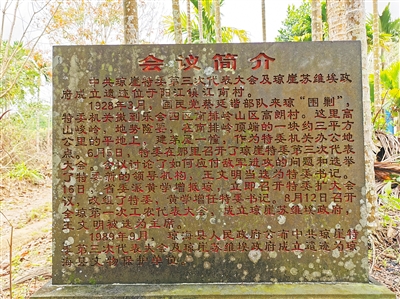 会议简介
中共琼崖特委第三次代表大会及琼崖苏维埃政
府成立遗迹位于阳江镇江南村。
1928年3月，国民党蔡廷锴部队来琼“围剿”，
特委机关撤到乐会四区南排岭山区高朗村。这里高
山峻岭，地势险要，在南排岭顶端的一块约三平方
公里的平地上，建茅屋一座，作为特委机关办公地
点。6月5日，特委在那里召开了琼崖特委第三次代表
大会。会议讨论了如何应付敌军进攻的问题和选举
了特委新的领导机构，王文明当选为特委书记。
16日，省委派黄学增抵琼，立即召开特委扩大会
议，改组了特委，黄学增任特委书记。8月12日召开
全琼第一次工农代表大会，成立琼崖苏维埃政府，
王文明被选为主席。
1989年9月，琼海县人民政府公布中共琼崖特
委第三次代表大会及琼崖苏维埃政府成立遗迹为琼
海县文物保护单位